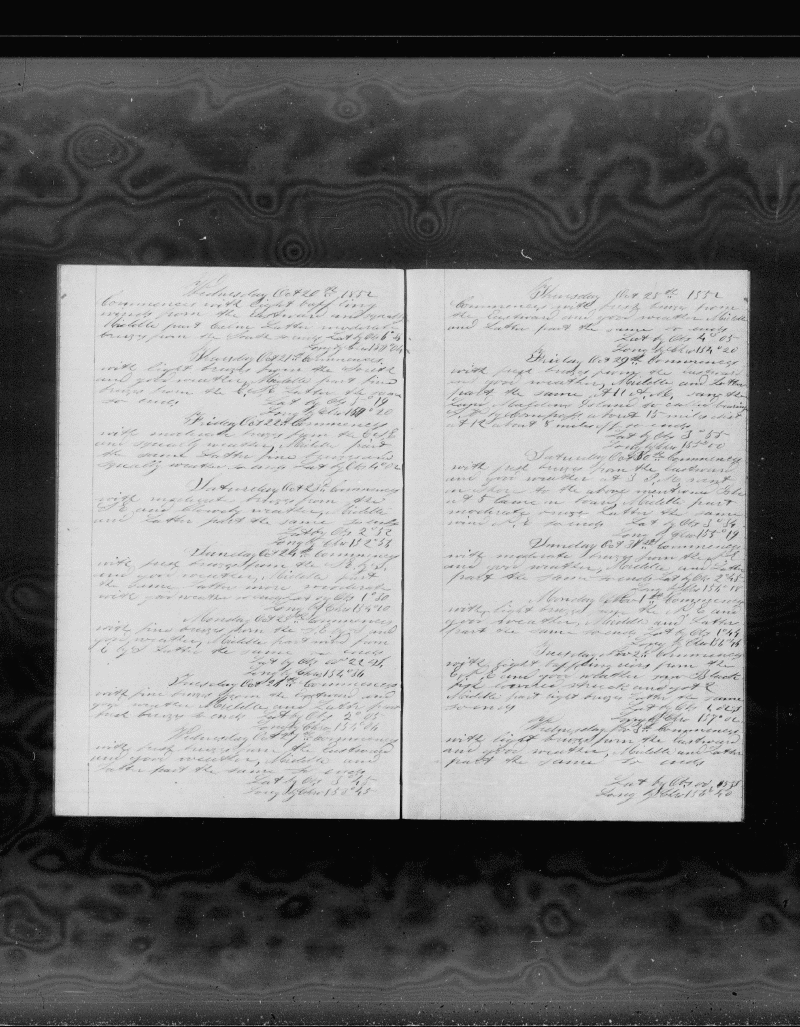 Wednesday Oct 20th 1852
Commences with light baffling
winds from the Eastward and
Middle part Latter moderate
breeze from the Lat by Obs
Long by Chro
Thursday Oct 21st Commences
with light breezes from the South
and good weather, Middle part fine
breezes from the Latter the same
so ends Lat by Obs 5°19
Long by Chro 20
Friday Oct 22 Commences
with moderate breezes from the
and squaly weather, Middle part
the same Latter fine breezes and
squally weather so ends Lat by Obs 4°02
Saturday Oct 23 Commences
with moderate breezes from the
S E and Cloudy weather, Middle
and Latter part the same so ends
Lat by Obs 2°52
Long by Chro 152°54
Sunday Oct 24th Commences
with fresh breezes from the S.E. by S.
and good weather, Middle part
the same Latter more moderate
with good weather so ends Lat by Obs 1°30
Long by Chro 154°10
Monday Oct 25th Commences
with fine breezes from the S.E. and
good weather, Middle part
E by S Latter the same so ends
Lat by Obs 00°22
Long by Chro 154°56
Tuesday Oct 26th Commences
with fine breezes from the Eastward and
good weather Middle and Latter part
fresh breezes so ends Lat by Obs 2°05
Long by Chro 154°04
Wednesday Oct 27th Commences
with fresh breezes from the Eastward
and good weather, Middle and
Latter part the same So ends
Lat by Obs 3°45
Long by Chro 152°45
Thursday Oct 28th 1852
Commences with fresh breezes from
the Eastward and good weather Middle
and Latter part the same so ends
Lat by Obs 4°05
Long by Chro 154°20
Friday Oct 29th Commences
with fresh breezes from the eastward
and good weather, Middle and Latter
part the same At 11 o'clk saw the
Island
by Compass about 15 miles dist
at 12 about 8 miles off so ends
Lat by Obs 3°55
Long by Chro 155°00
Saturday Oct 30th Commences
with fresh breezes from the Eastward
and good weather at 3 P.M. sent
on shore to the above mentioned Isle
at 5 Came on board Middle part
moderate breeze Latter the same
wind S.E. so ends Lat by Obs 3°34
Long by Chro 155°19
Sunday Oct 31st Commences
with moderate breezes from the S.E.
and good weather, Middle and Latter
part the same so ends Lat by Obs 2°45
Long by Chro 156°18
Monday Nov 1st Commences
with light breezes from the N.E and
good weather, Middle and Latter
part the same so ends Lat by Obs 1°44
Long by Chro 156°16
Tuesday Nov 2d Commences
with light baffling airs from the
and good weather saw Black
fish lowered struck and got 2
Middle part light breeze Latter the same
so ends Lat by Obs
Long by Chro 157°02
Wednesday Nov 3d Commences
with light breezes from the Eastward
and good weather, Middle and Latter
part the same So ends
Lat by Obs 00
Long by Chro 156°40